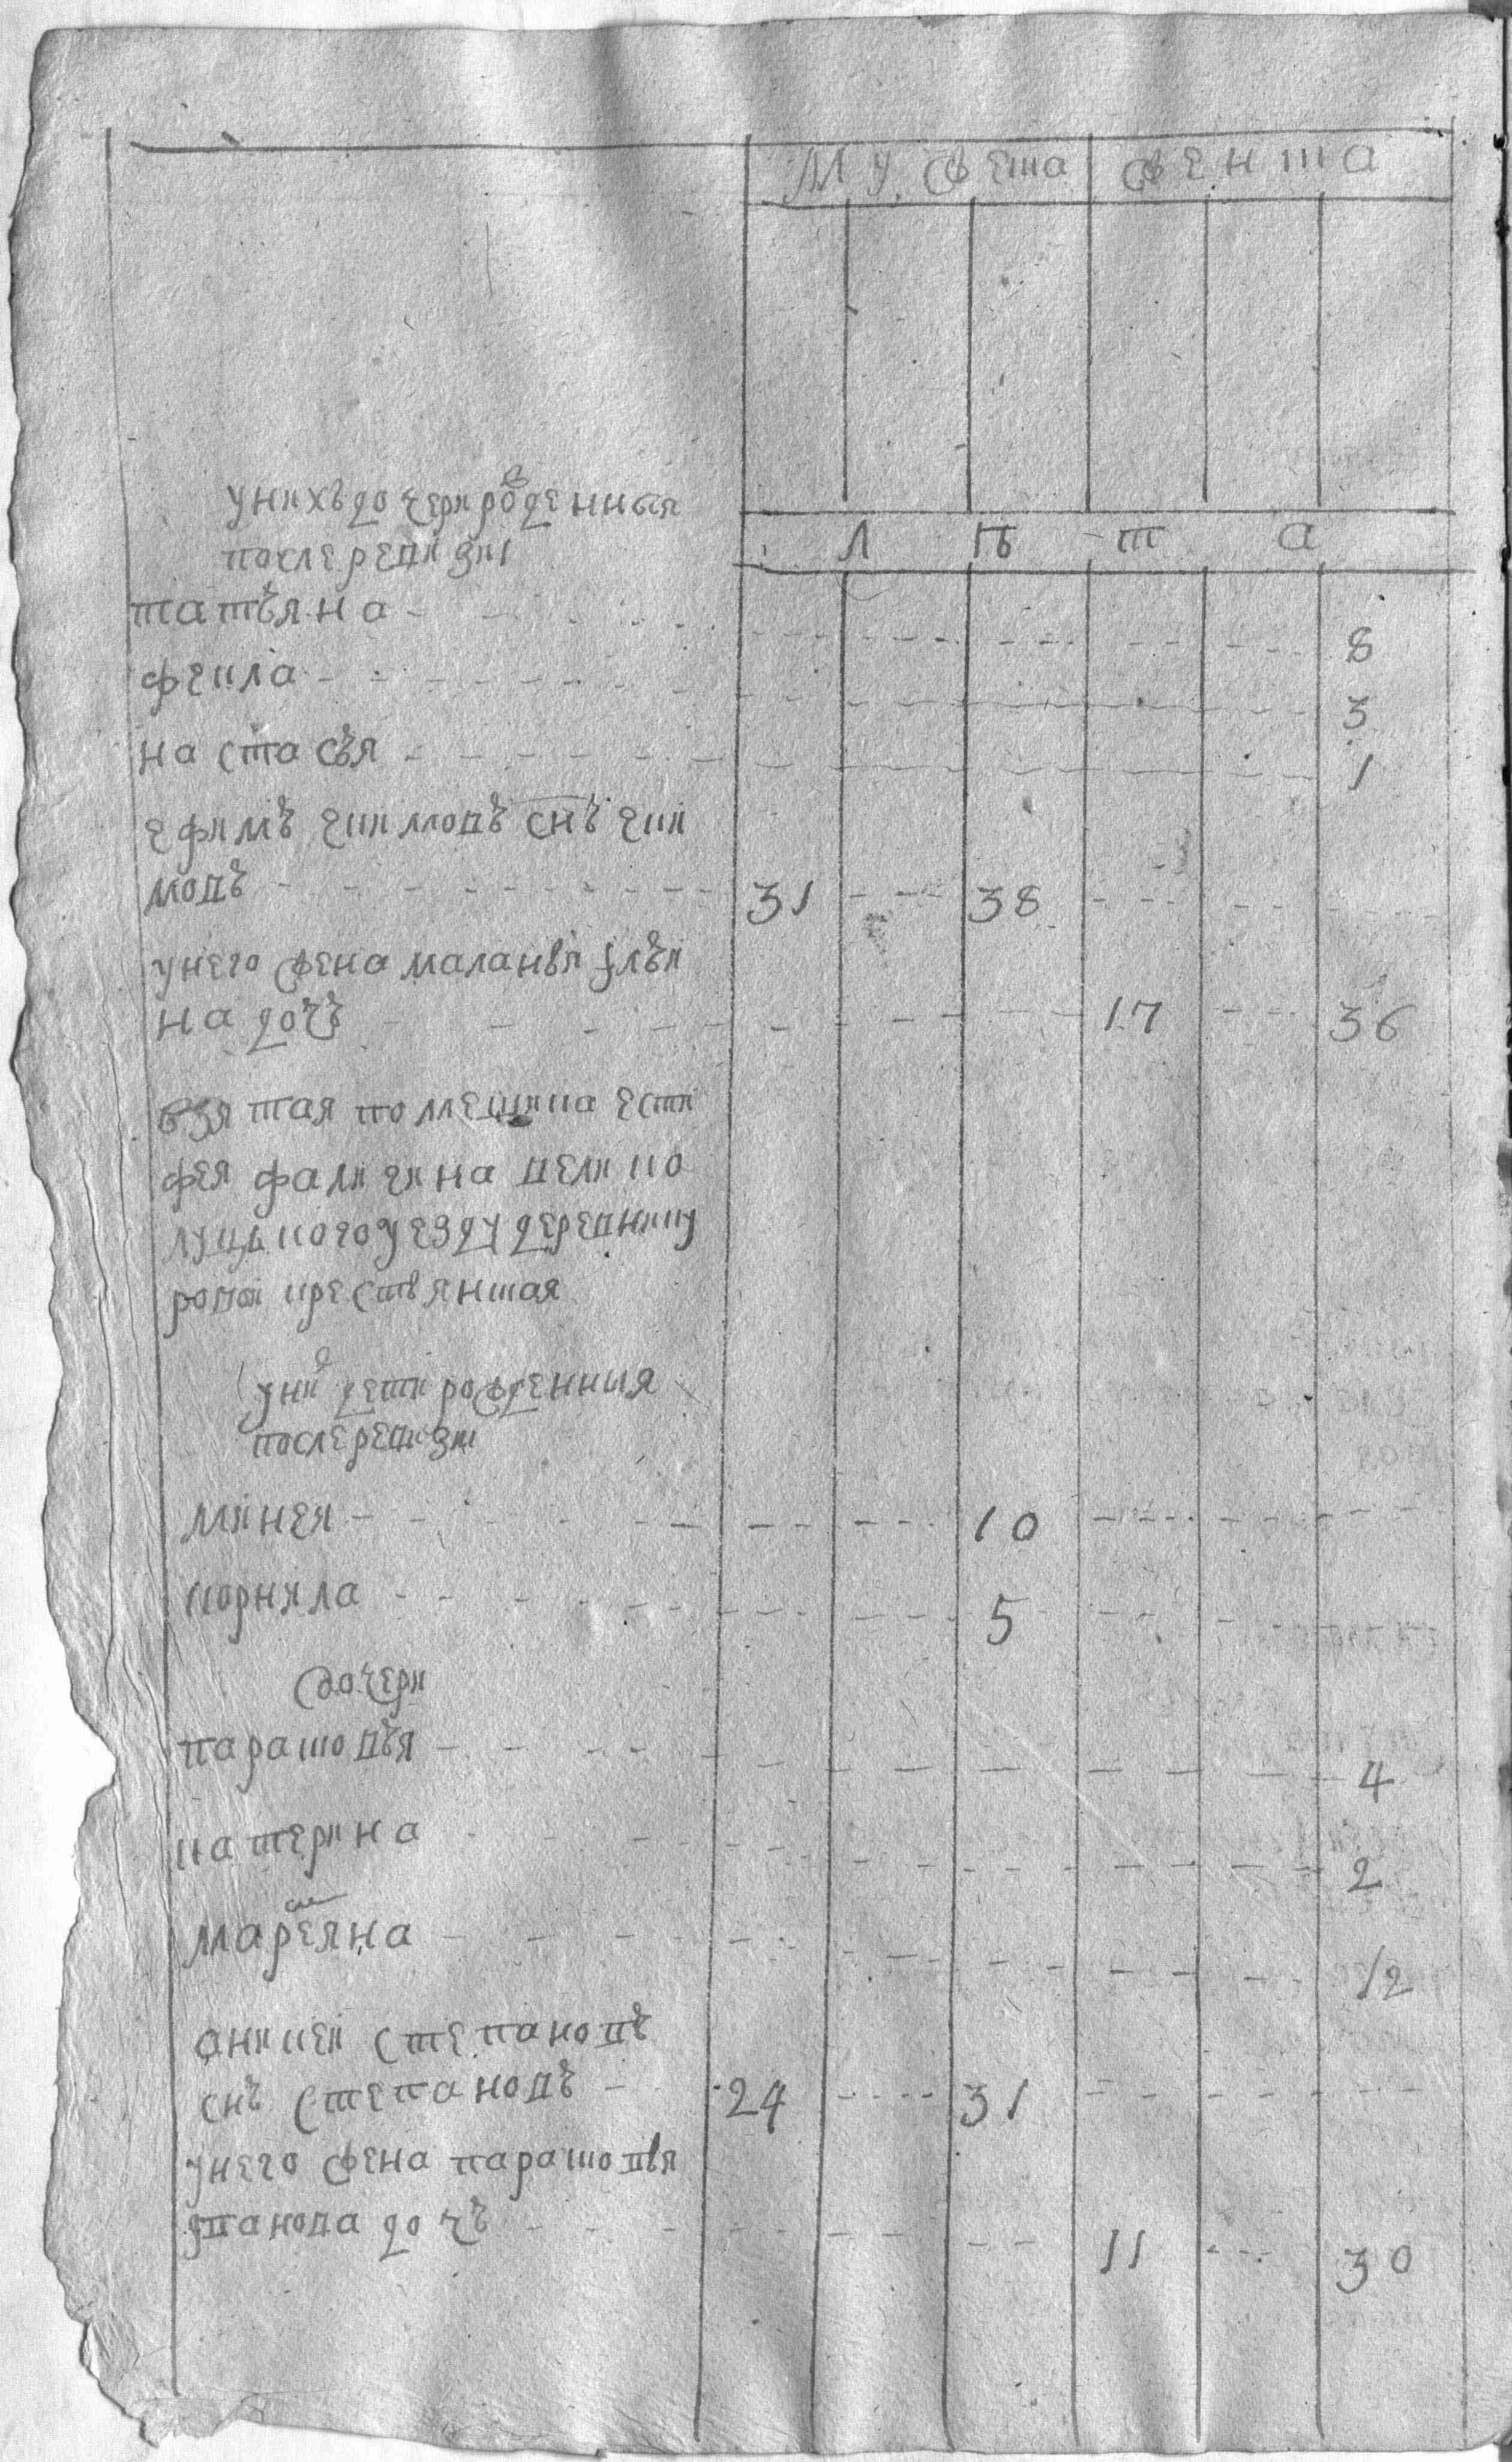 мужеска женска
л ѣ т а
у нихъ дочери рожденныя
после ревизии
татьяна 8
фекла 3
настасья 1
ефимъ екимовъ снъ еки
мовъ 31 38
у него жена маланья ильи
на дочь 17 36
взятая помещика ести
фея фаличина велико
луцкого уезду деревни
ровой крестьянская
у ни дети рожденныя
после ревизии
миней 10
корнила 5
дочери
парасковья 4
катерина 2
марема яна 12
аникей степановъ
снъ степановъ 24 31
у него жена парасковья
иванова дочь 11 30